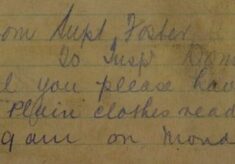 om Supt Foster
To Insp Don
l you please hav
Plain clothes read
9 am on Mond